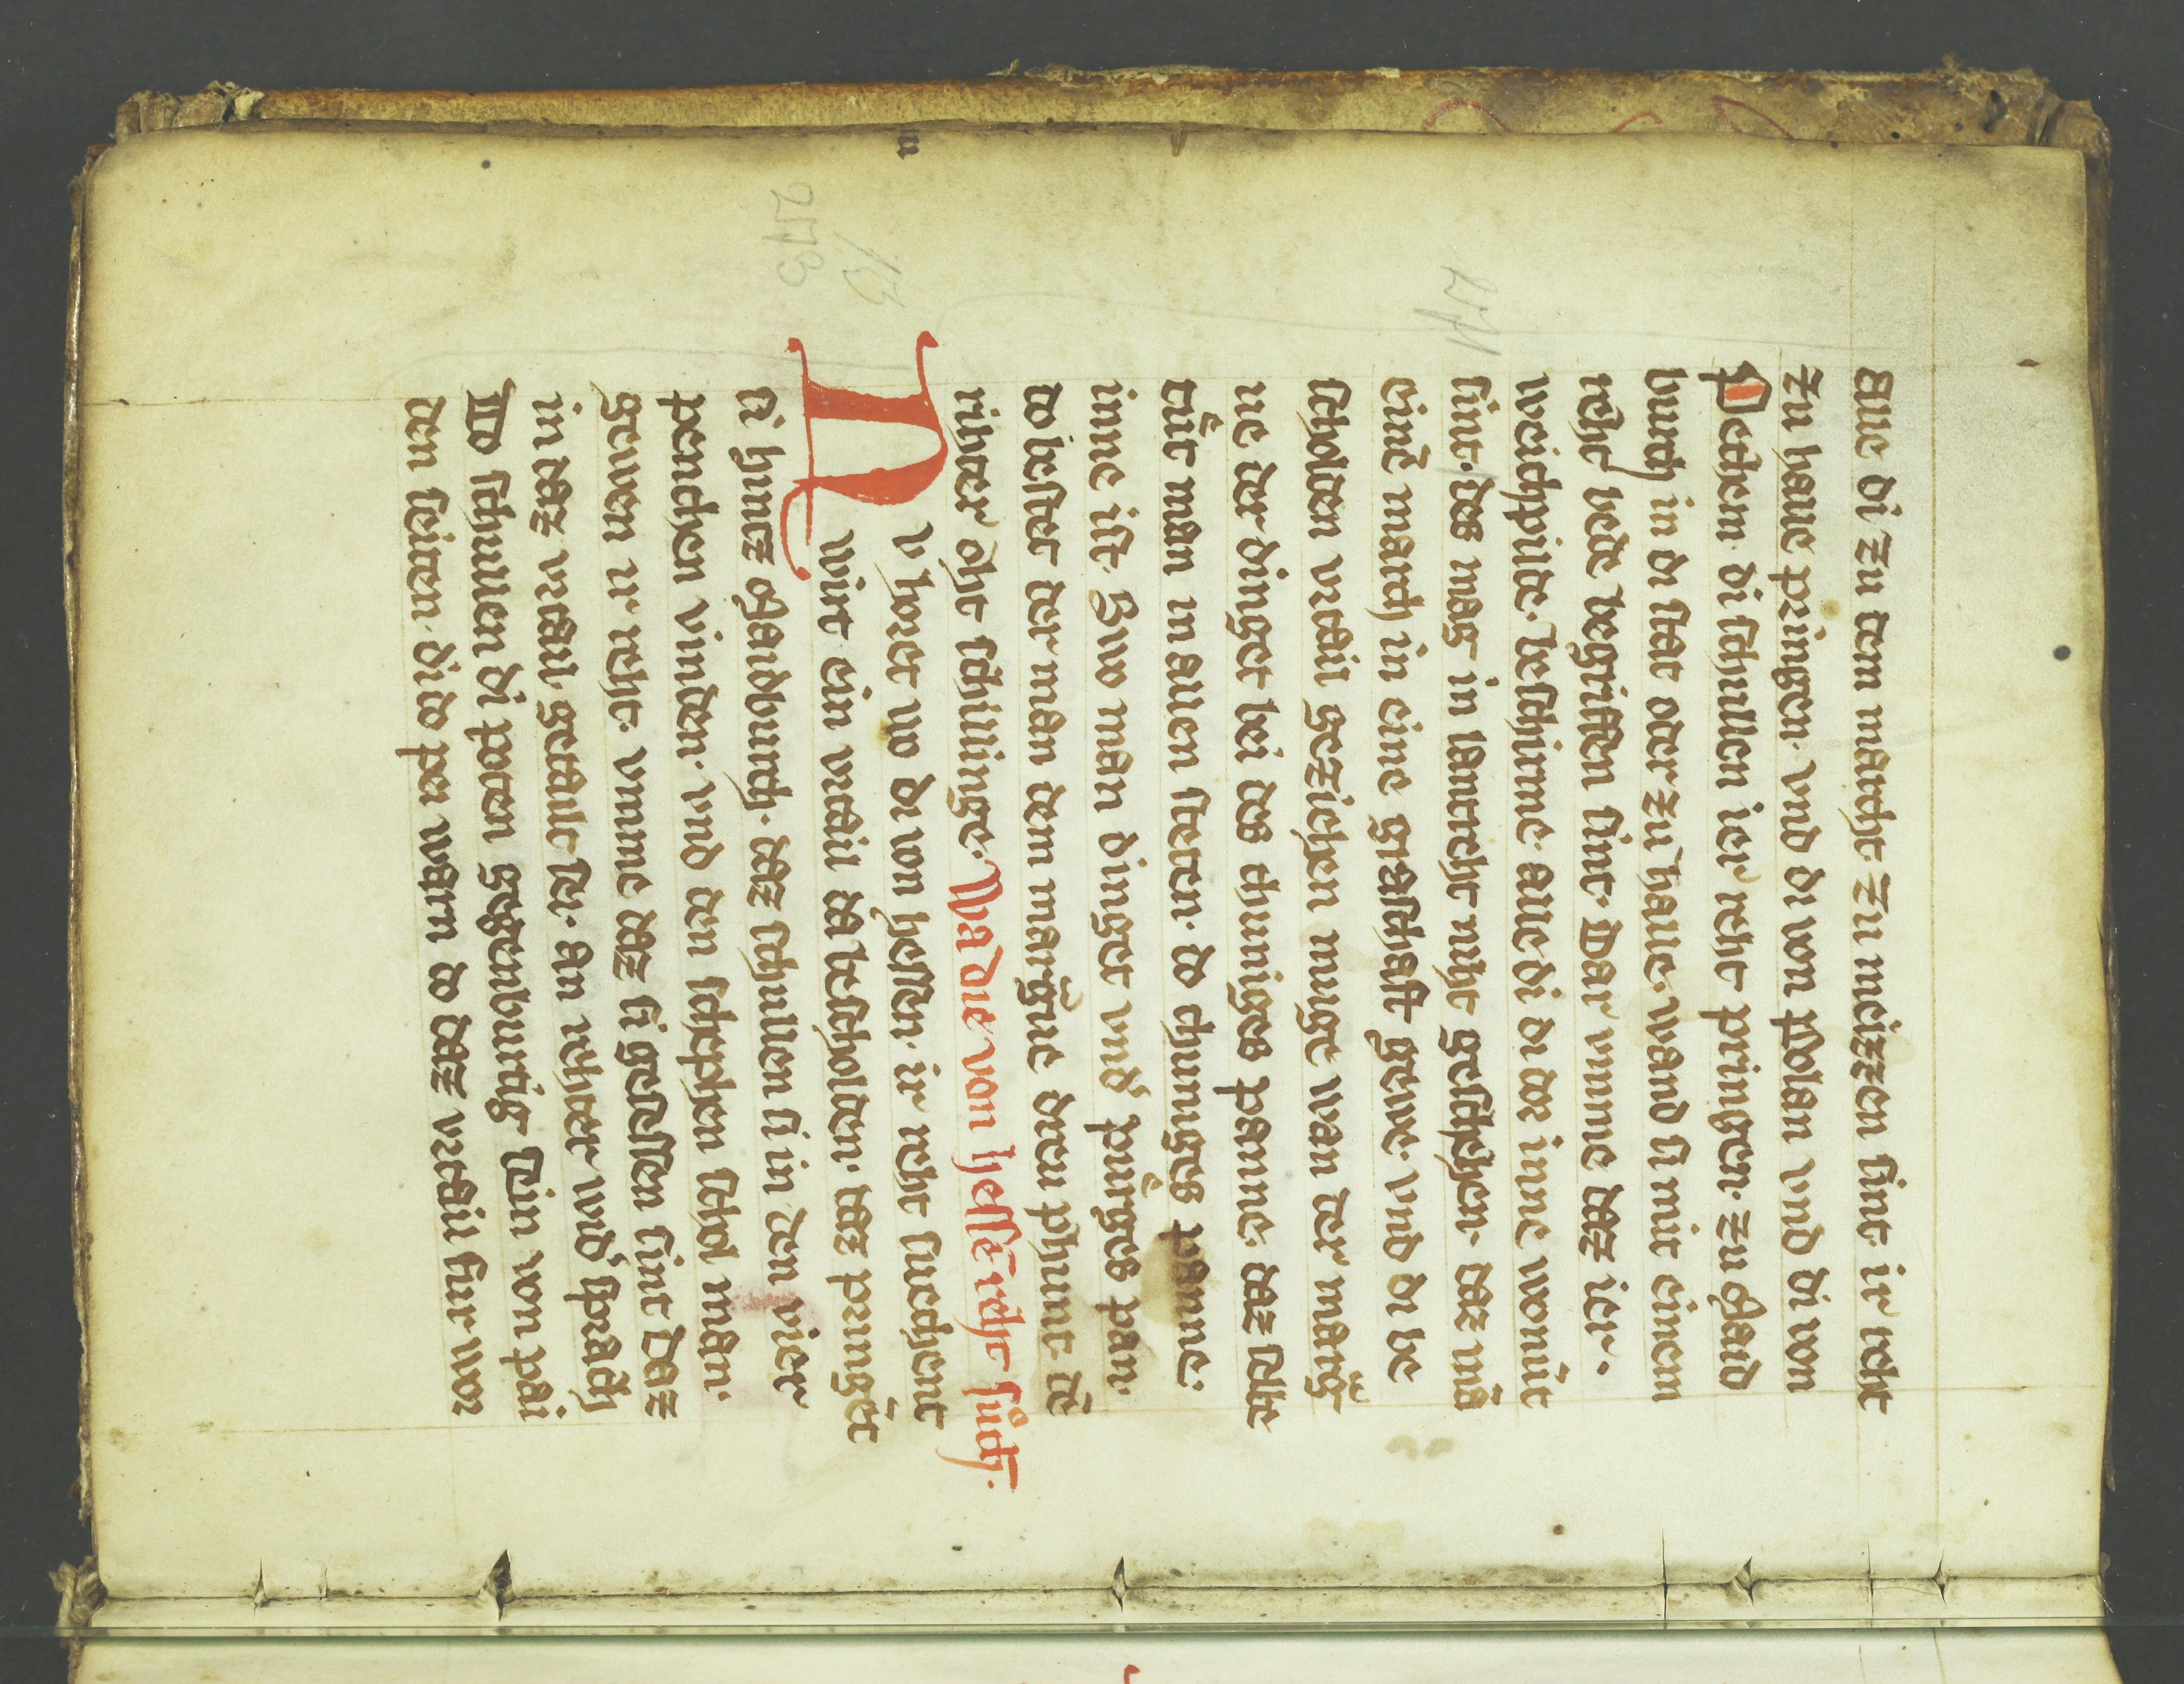 alle di zu dem marcht zu meizzen sint ir recht
zu halle pringen. vnd di von polan vnd di von
Pechem. di schullen ier reht pringen. zu Maid
burch in di stat oder zu halle. wand si mit einem
reht bede begriffen sint. Dar vmme daz ier.
weichpilde. beschirme alle di di dor inne wonūt
sint. des mag in lantrecht niht geschehen. daz mā
einē march in eine graschaft geue. vnd di be
scholten vrtail geziehen muge wan der marg
ue der dinget bei des chuniges panne. daz selbe
tůt man in allen steten. do chuniges panne.
inne ist. Swo man dinget vnd' purges pan.
do bestet der man dem margue dreu phunt dē
rihter oht schillinge. Wa die von hessē reht suchē.
NV horet wo di von hessen. ir reht suechent
wirt ein vrtail da bescholten. daz prīngēt
si hincz Maidburch. daz schullen si in den vier
penchen vinden. vnd den schephen schol man.
geuen ir reht. vmme daz si gesessen sint daz
in daz vrtail. getailt sei. an rehter wid'sprach
No schullen di poten gegenburtig sein von pai
den seiten. di do pei warn do daz vrtail fur wor
273
13
271